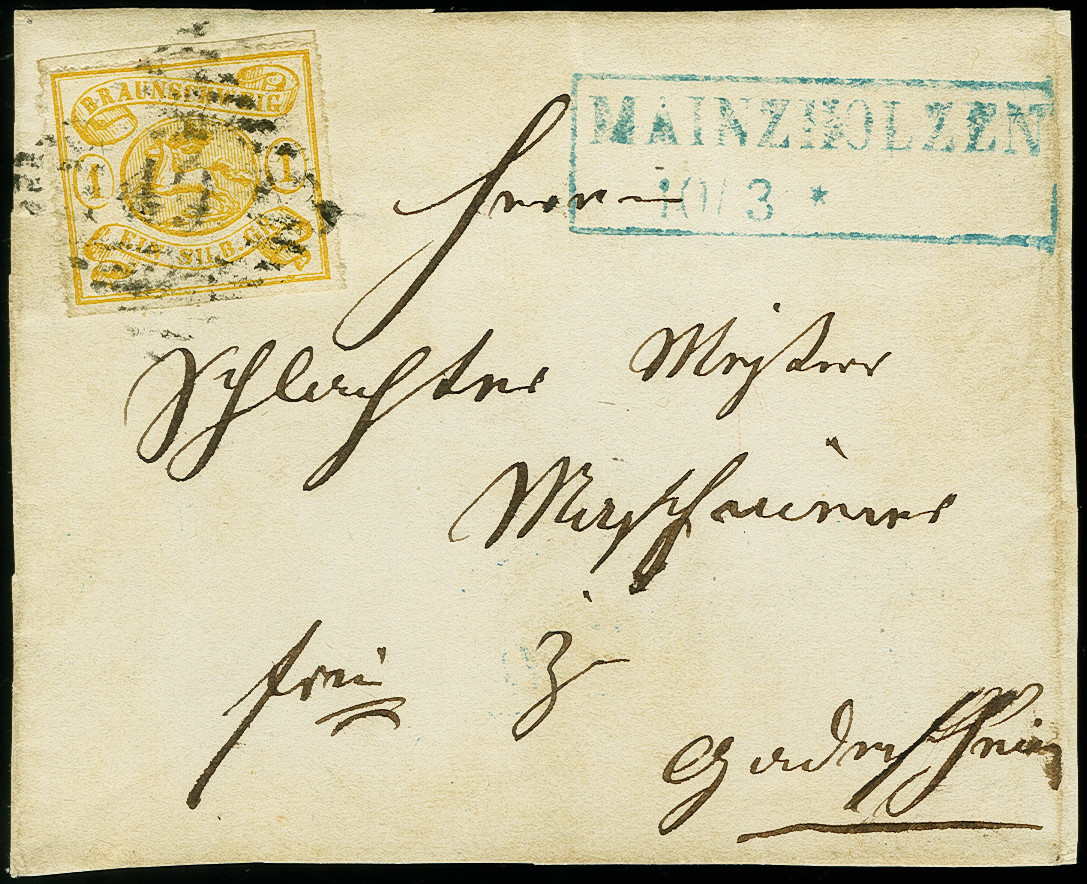 BRAUNSCHWEIG
1 1
EIN SILB. GR.
15
MAINZHOLZEN
10/3 *
Herrn
Schlachter Meister
frei
Z
Gandersheim